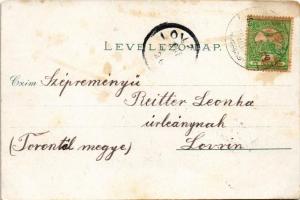 LEVELEZŐ-LAP.
Czim Szépreményü
Reitter Leonka
úrleánynak
(Torontál megye) Lovrin